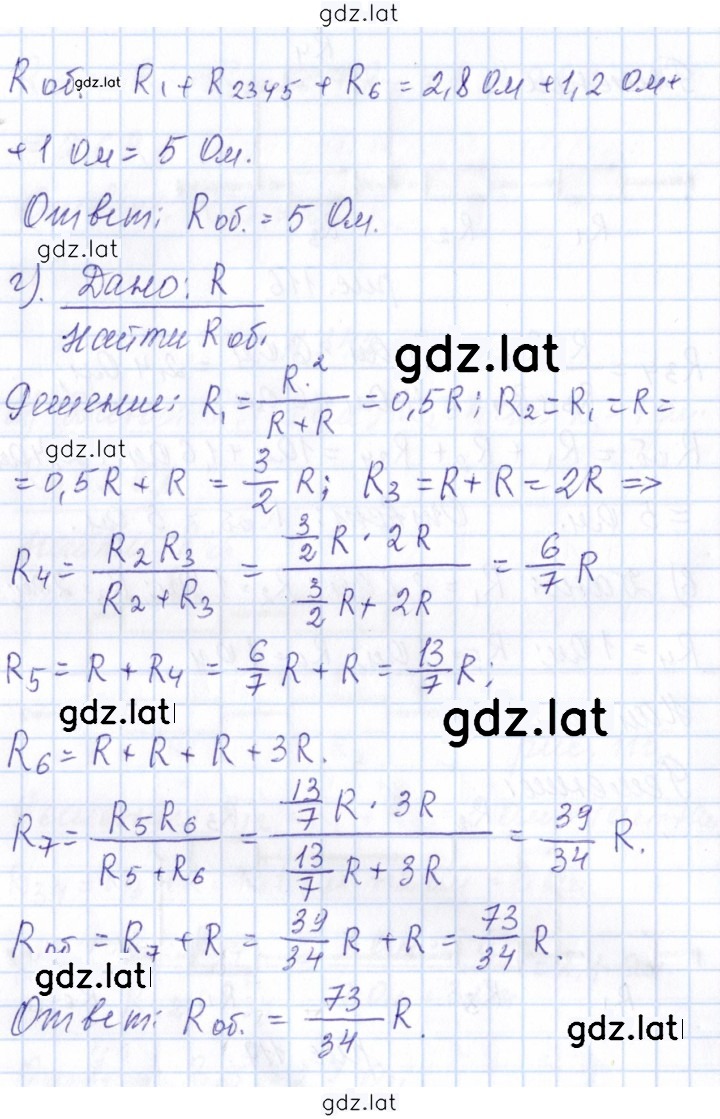 gdz.lat
R об. gdz.lat R₁ + R₂₃₄₅ + R₆ = 2,8 Ом + 1,2 Ом +
+ 1 Ом = 5 Ом.
Ответ: R об. = 5 Ом.
gdz.lat
г). Дано: R
Найти R об.
gdz.lat
Решение: R₁ = R·² / (R + R) = 0,5R; R₂ = R₁ = R =
gdz.lat
= 0,5R + R = 3/2 R; R₃ = R + R = 2R =>
R₄ = R₂R₃ / (R₂ + R₃) = (3/2 R · 2R) / (3/2 R + 2R) = 6/7 R
R₅ = R + R₄ = 6/7 R + R = 13/7 R;
gdz.lat
gdz.lat
R₆ = R + R + R + 3R.
R₇ = R₅R₆ / (R₅ + R₆) = (13/7 R · 3R) / (13/7 R + 3R) = 39/34 R.
R об = R₇ + R = 39/34 R + R = 73/34 R.
gdz.lat
Ответ: R об. = 73/34 R.
gdz.lat
gdz.lat